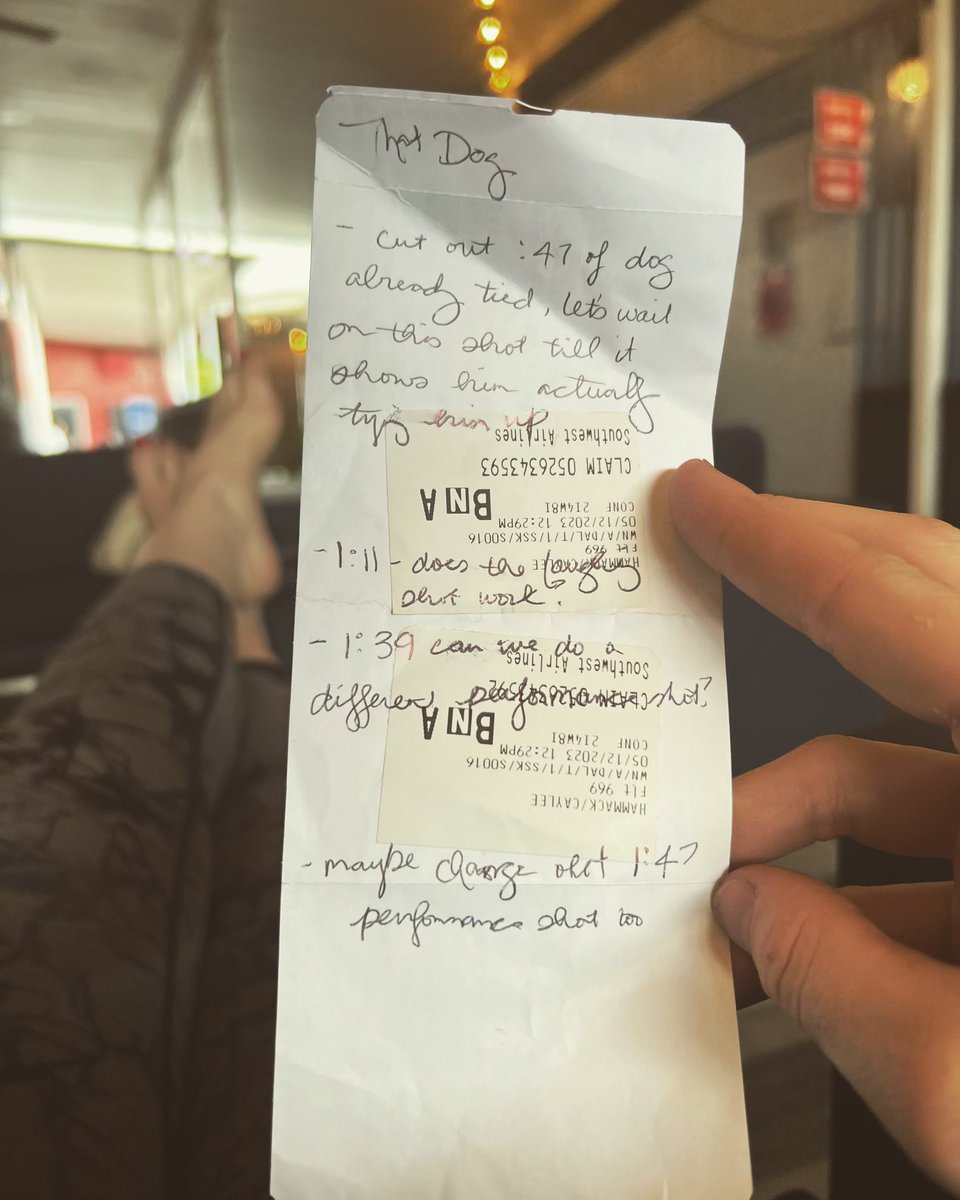 That Dog
- cut out :47 of dog
already tied, let's wait
on this shot till it
shows him actually
tying him up
Southwest Airlines
CLAIM 0526343593
BNA
CONF 2I4W8I
05/12/2023 12:29PM
WN/A/DAL/T/1/SSK/S0016
Flt 969
HAMMACK/CAYLEE
- 1:11 - does the
shot work?
- 1:39 can we do a
different performance shot?
Southwest Airlines
CLAIM 0526343592
BNA
CONF 2I4W8I
05/12/2023 12:29PM
WN/A/DAL/T/1/SSK/S0016
Flt 969
HAMMACK/CAYLEE
- maybe change shot 1:47
performance shot too